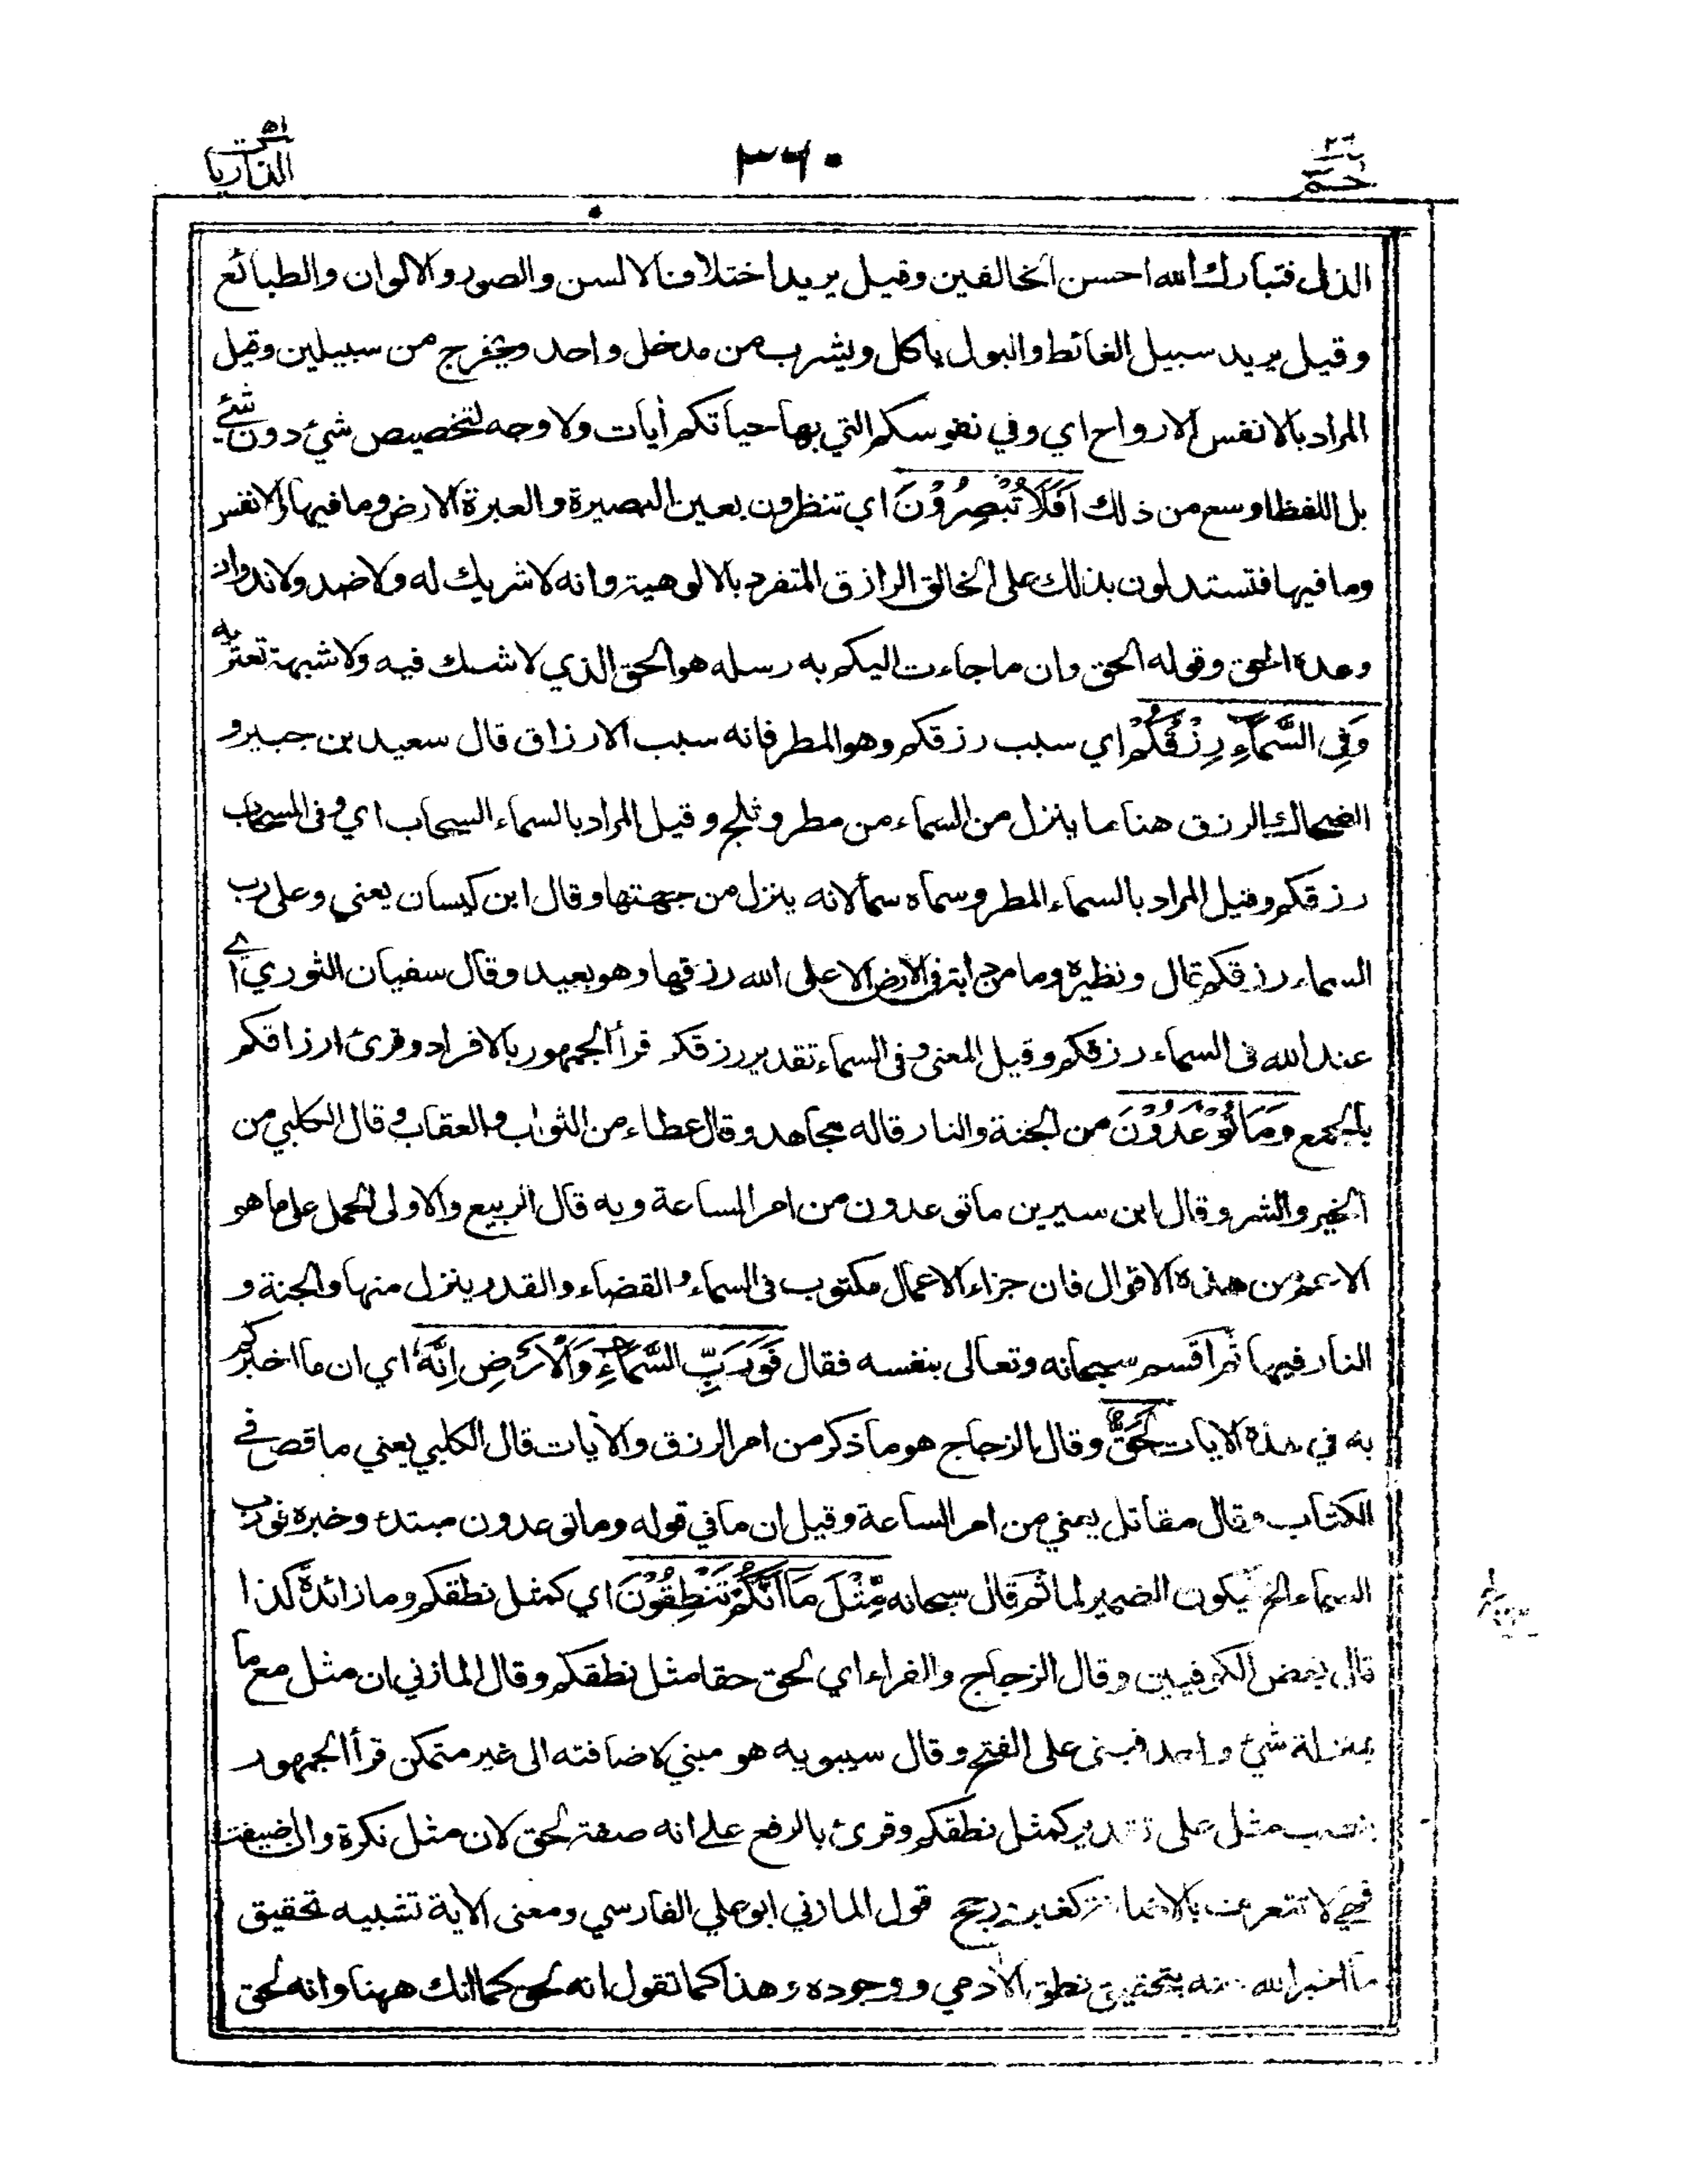 حـم
٣٦٠
الذاريات ٥١
الذل فتبارك الله احسن الخالقين وقيل يريد اختلاف الالسن والصور والالوان والطبائع
وقيل يريد سبيل الغائط والبول ياكل ويشرب من مدخل واحد ويخرج من سبيلين وقيل
المراد بالانفس الارواح اي وفي نفوسكم التي بها حياتكم أيات ولا وجه لتخصيص شيء دون شيء
بل اللفظ اوسع من ذلك اَفَلَا تُبْصِرُوْنَ اي تنظرون بعين البصيرة والعبرة الارض وما فيها والانفس
وما فيها فتستدلون بذلك على الخالق الرازق المتفرد بالالوهية وانه لا شريك له ولا ضد ولا ند وان
وعده الحق وقوله الحق وان ما جاءت اليكم به رسله هو الحق الذي لا شك فيه ولا شبهة تعتريه
وَفِي السَّمَآءِ رِزْقُكُمْ اي سبب رزقكم وهو المطر فانه سبب الارزاق قال سعيد بن جبير و
الضحاك الرزق هنا ما ينزل من السماء من مطر وثلج وقيل المراد بالسماء السحاب اي وفى السحاب
رزقكم وقيل المراد بالسماء المطر وسماه سمأ لانه ينزل من جهتها وقال ابن كيسان يعني وعلى رب
السماء رزقكم قال ونظيره وما من دابة فى الارض الا على الله رزقها وهو بعيد وقال سفيان الثوري اي
عند الله فى السماء رزقكم وقيل المعنى وفى السماء تقدير رزقكم قرأ الجمهور بالافراد وقرئ ارزاقكم
بالجمع وَمَا تُوْعَدُوْنَ من الجنة والنار قاله مجاهد وقال عطاء من الثواب والعقاب وقال الكلبي من
الخير والشر وقال ابن سيرين ما توعدون من امر الساعة وبه قال الربيع والاولى الحمل على ما هو
الاعم من هذه الاقوال فان جزاء الاعمال مكتوب فى السماء والقضاء والقدر ينزل منها والجنة و
النار فيها ثم اقسم سبحانه وتعالى بنفسه فقال فَوَرَبِّ السَّمَآءِ وَالْاَرْضِ اِنَّهٗ اي ان ما اخبركم
به في هذه الايات لَحَقٌّ وقال الزجاج هو ما ذكر من امر الرزق والأيات قال الكلبي يعني ما قص في
الكتاب وقال مقاتل يعني من امر الساعة وقيل ان ما في قوله وما توعدون مبتدء وخبره فورب
السماء الخ فيكون الضمير لما ثم قال سبحانه مِّثْلَ مَآ اَنَّكُمْ تَنْطِقُوْنَ اي كمثل نطقكم وما زائدة كذا
قال بعض الكوفيين وقال الزجاج والفراء اي لحق حقا مثل نطقكم وقال المازني ان مثل مع ما
بمنزلة شيء واحد فبنى على الفتح وقال سيبويه هو مبني لاضافته الى غير متمكن قرأ الجمهور
بنصب مثل على تقدير كمثل نطقكم وقرئ بالرفع على انه صفة لحق لان مثل نكرة وان اضيفت
فهي لا تتعرف بالاضافة كغير ورجح قول المازني ابو علي الفارسي ومعنى الأية تشبيه تحقيق
ما اخبر الله عنه بتحقيق نطق الأدمي ووجوده وهذا كما تقول انه لحق كما انك ههنا وانه لحق